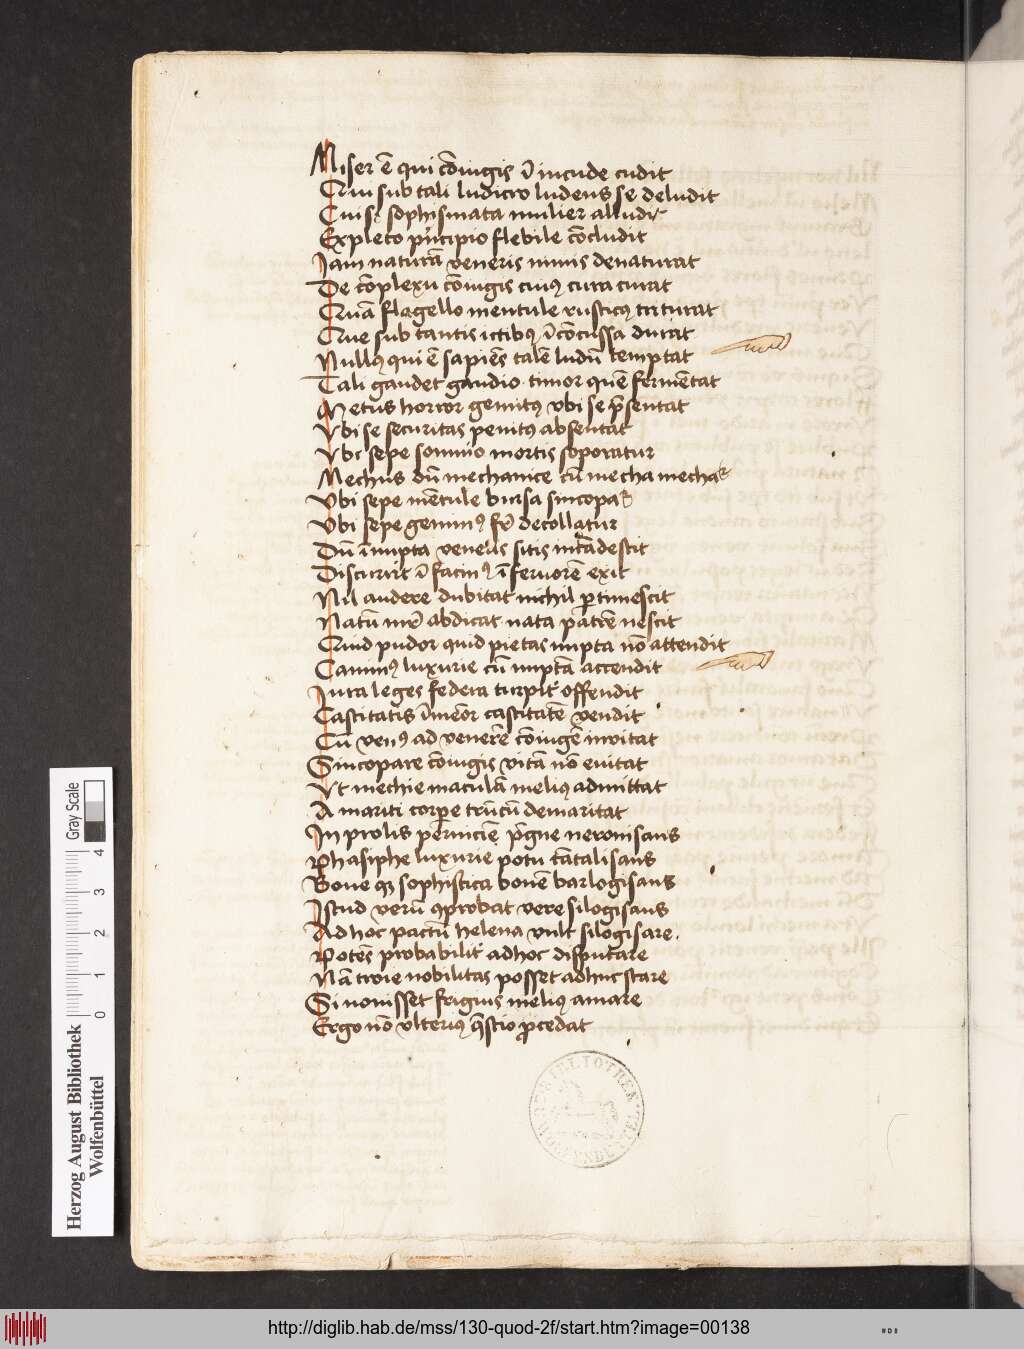 Miser ē qui cōiugis ī incude cudit
Qui sub tali ludicro ludens se deludit
Cui sophismata mulier alludit
Expleto pͥncipio flebile cōcludit
Jam naturā veneris nimis denaturat
De cōplexu cōiugis cuiꝰ cura curat
Quā flagello mentule rusticꝰ triturat
Que sub tantis ictibꝰ īcōcussa durat
Nullꝰ qui ē sapiēs talē ludū temptat
Tali gaudet gaudio timor quē fermētat
Metus horror gemitꝰ vbi se p̄sentat
Vbi se securitas penitꝰ absentat
Vbi sepe somnio mortis soporatur
Mechus dū mechanice cū mecha mechaꝛ
Vbi sepe mētule bursa sincopaꝛ
Vbi sepe geminꝰ fr̄ decollatur
Dū īnupta veneris sitis incādescit
Discurrit ī facinꝰ ī feruorē exit
Nil audere dubitat nichil ꝑtimescit
Natū mr̄ abdicat nata patrē nescit
Quid pudor quid pietas nupta nō attendit
Caminꝰ luxurie cū nuptā accendit
Jura leges federa turpitͬ offendit
Castitatis īmeōr castitatē vendit
Cū venꝰ ad venerē cōiugē inuitat
Sincopare cōiugis vitā nō euitat
Vt mechie maculā meliꝰ admittat
A mariti corꝑe trūcū demaritat
In prolis perniciē ꝓgne neronisans
Phasiphe luxurie potu tātalisans
Boue qꝫ sophistica bouē barlogisans
Istud verū ꝯprobat vere silogisans
Ad hoc pactū helena vult silogisare.
Potēs probabilitͬ adhoc disputare
Nā troie nobilitas posset adhuc stare
Si nouisset frigius meliꝰ amare
Ergo nō vlterius q̄stio ꝓcedat
BIBLIOTHEK WOLFENBÜTTEL
Herzog August Bibliothek
Wolfenbüttel
0 1 2 3 4
Gray Scale
http://diglib.hab.de/mss/130-quod-2f/start.htm?image=00138